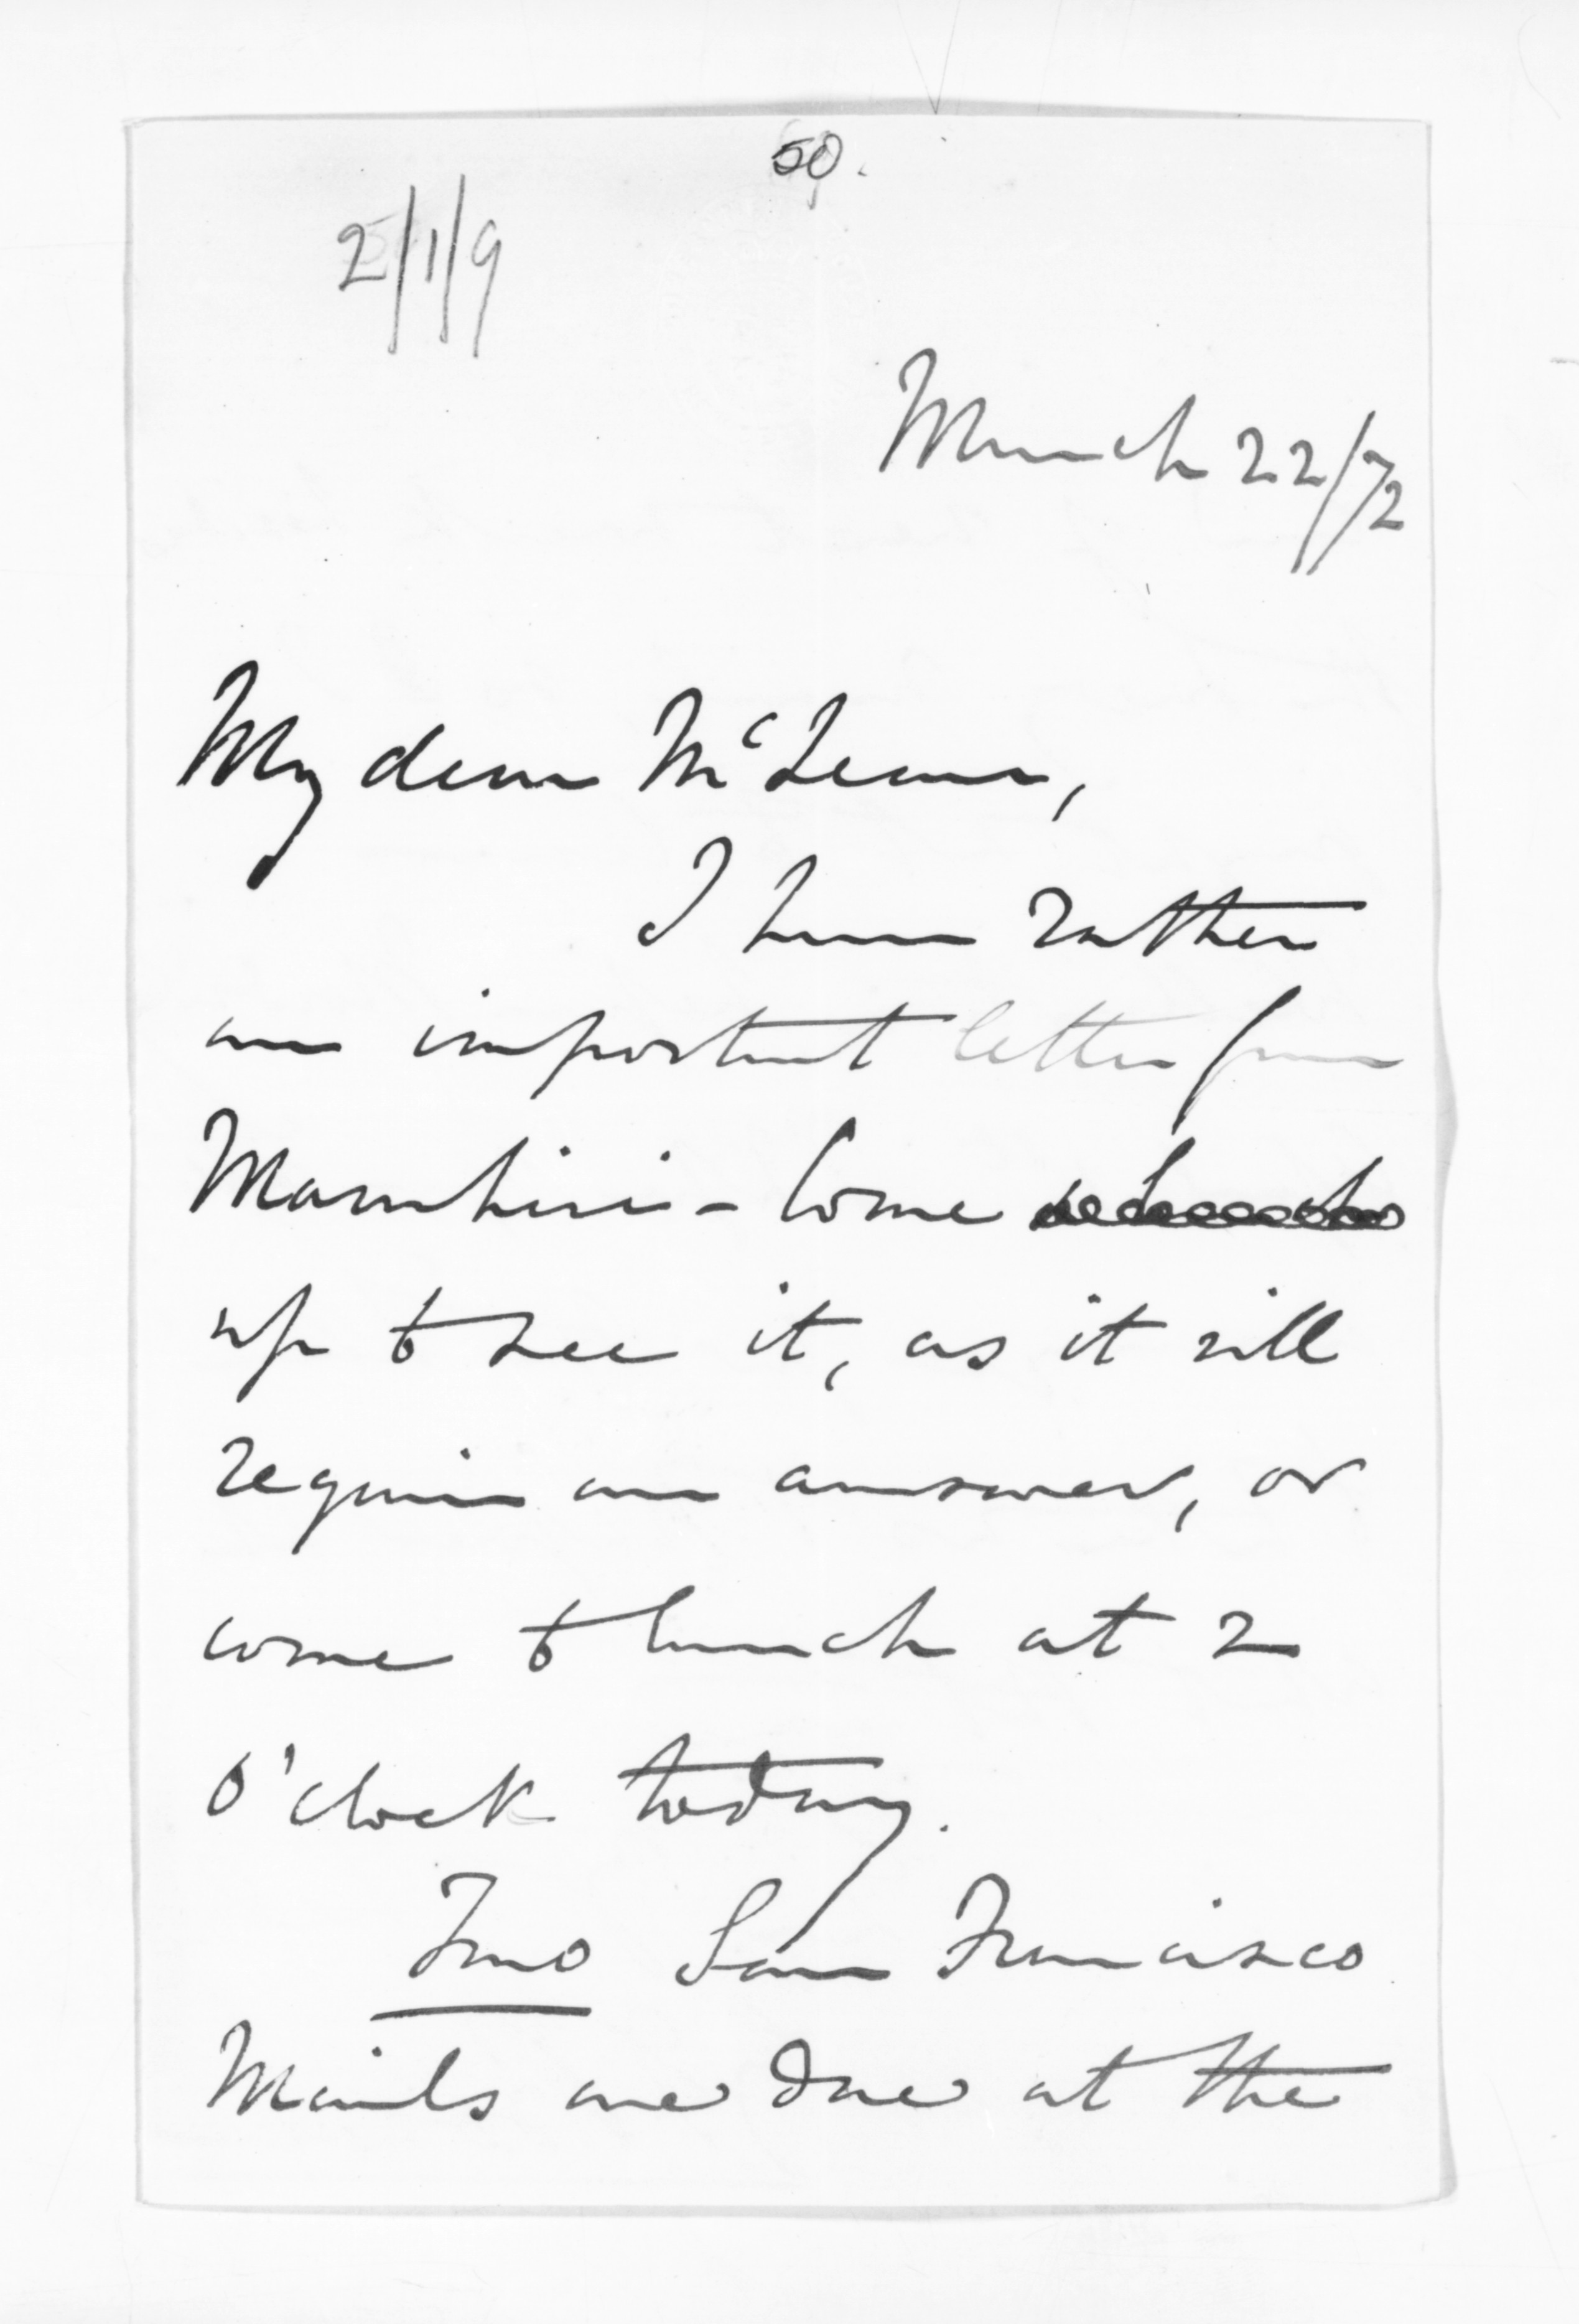 50.
2/1/9
March 22/72
My dear McLean,
I have rather
an important letter from
Manuhiri - Come
up to see it, as it will
require an answer, or
come to lunch at 2
o'clock today.
Two San Francisco
Mails are due at the